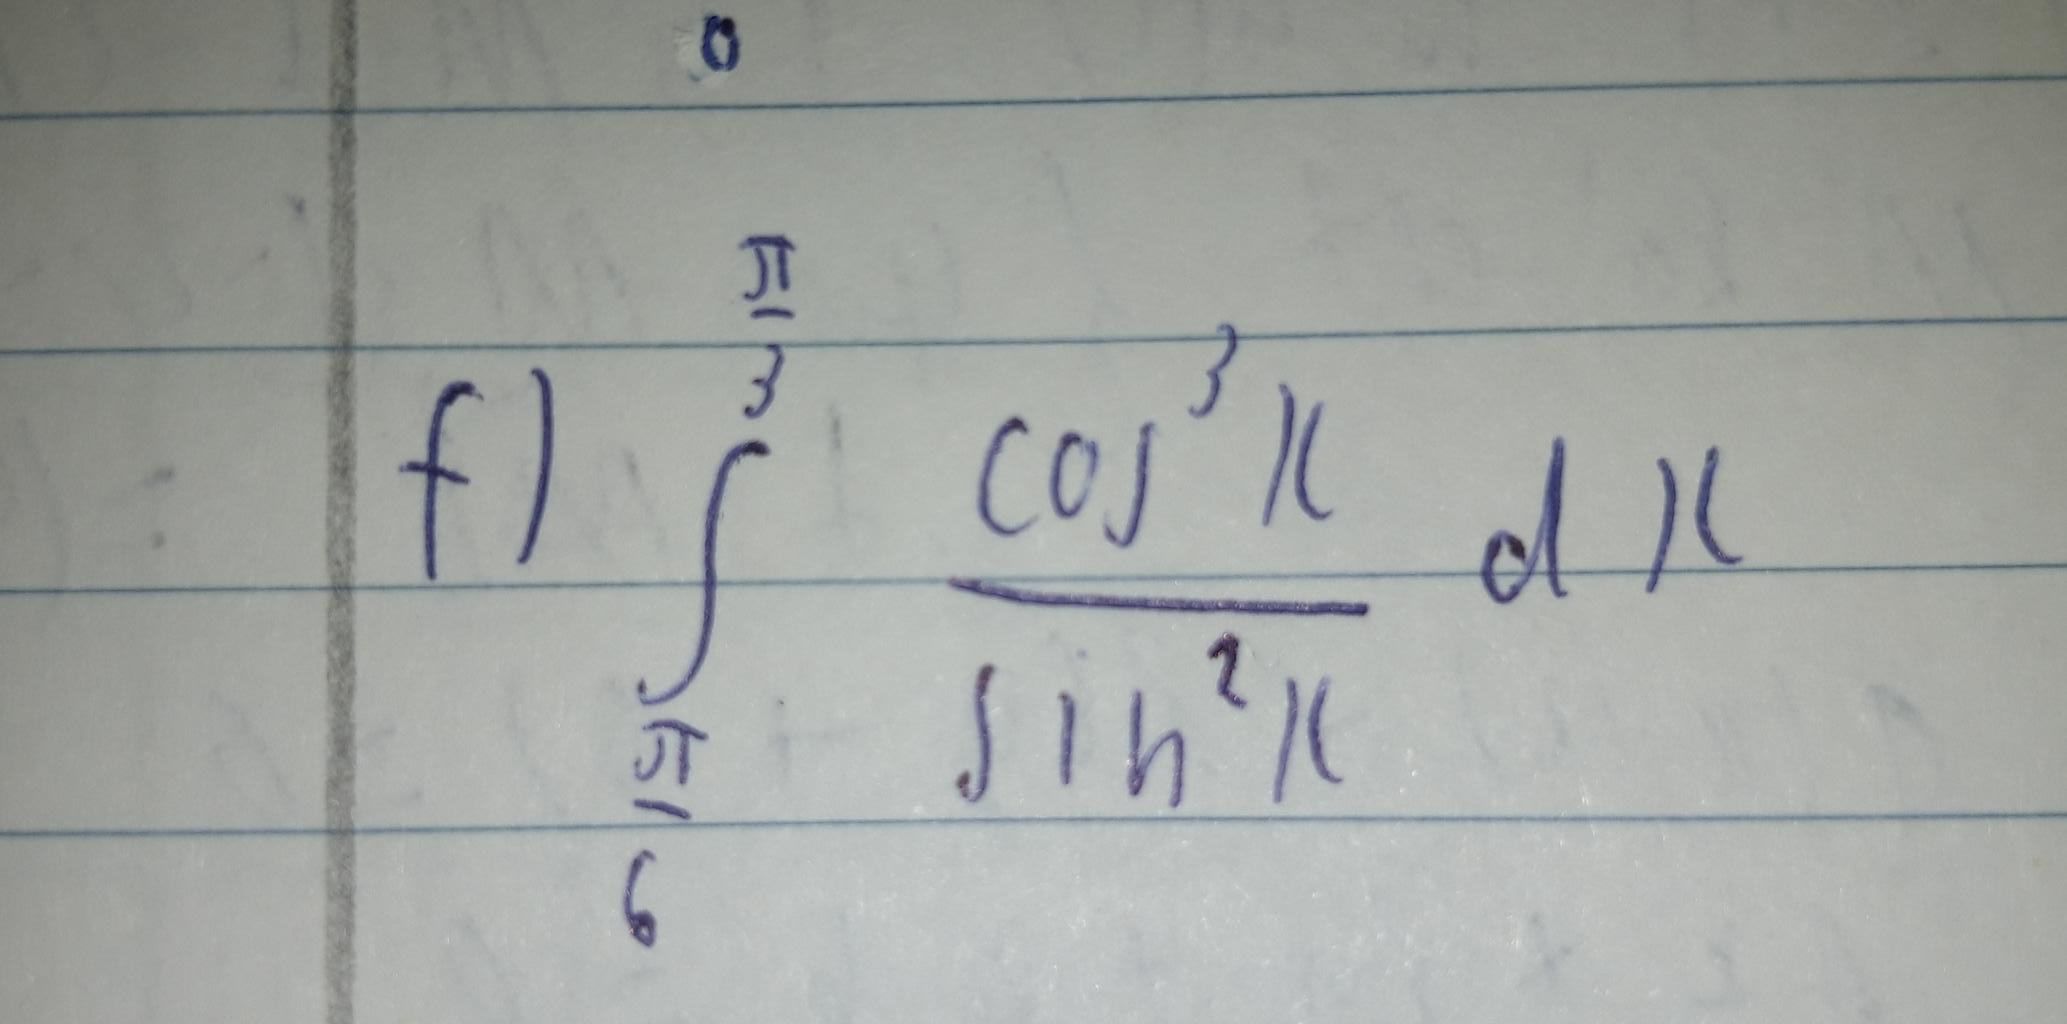 0
f) ∫_{π/6}^{π/3} cos³x / sin²x dx